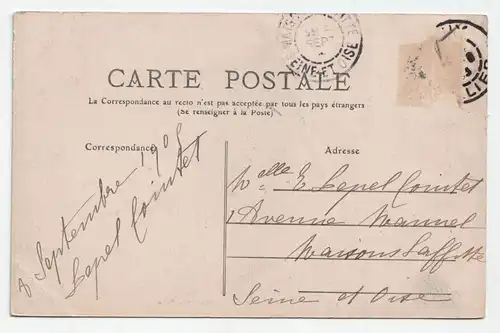 LAFFITTE
SEINE-ET-OISE
CARTE POSTALE
La Correspondance au recto n'est pas acceptée par tous les pays étrangers
(Se renseigner à la Poste)
Correspondance
8 Septembre 1905
Lepel Cointet
Adresse
Melle E Lepel Cointet
1 Avenue
Maisons Laffitte
Seine et Oise